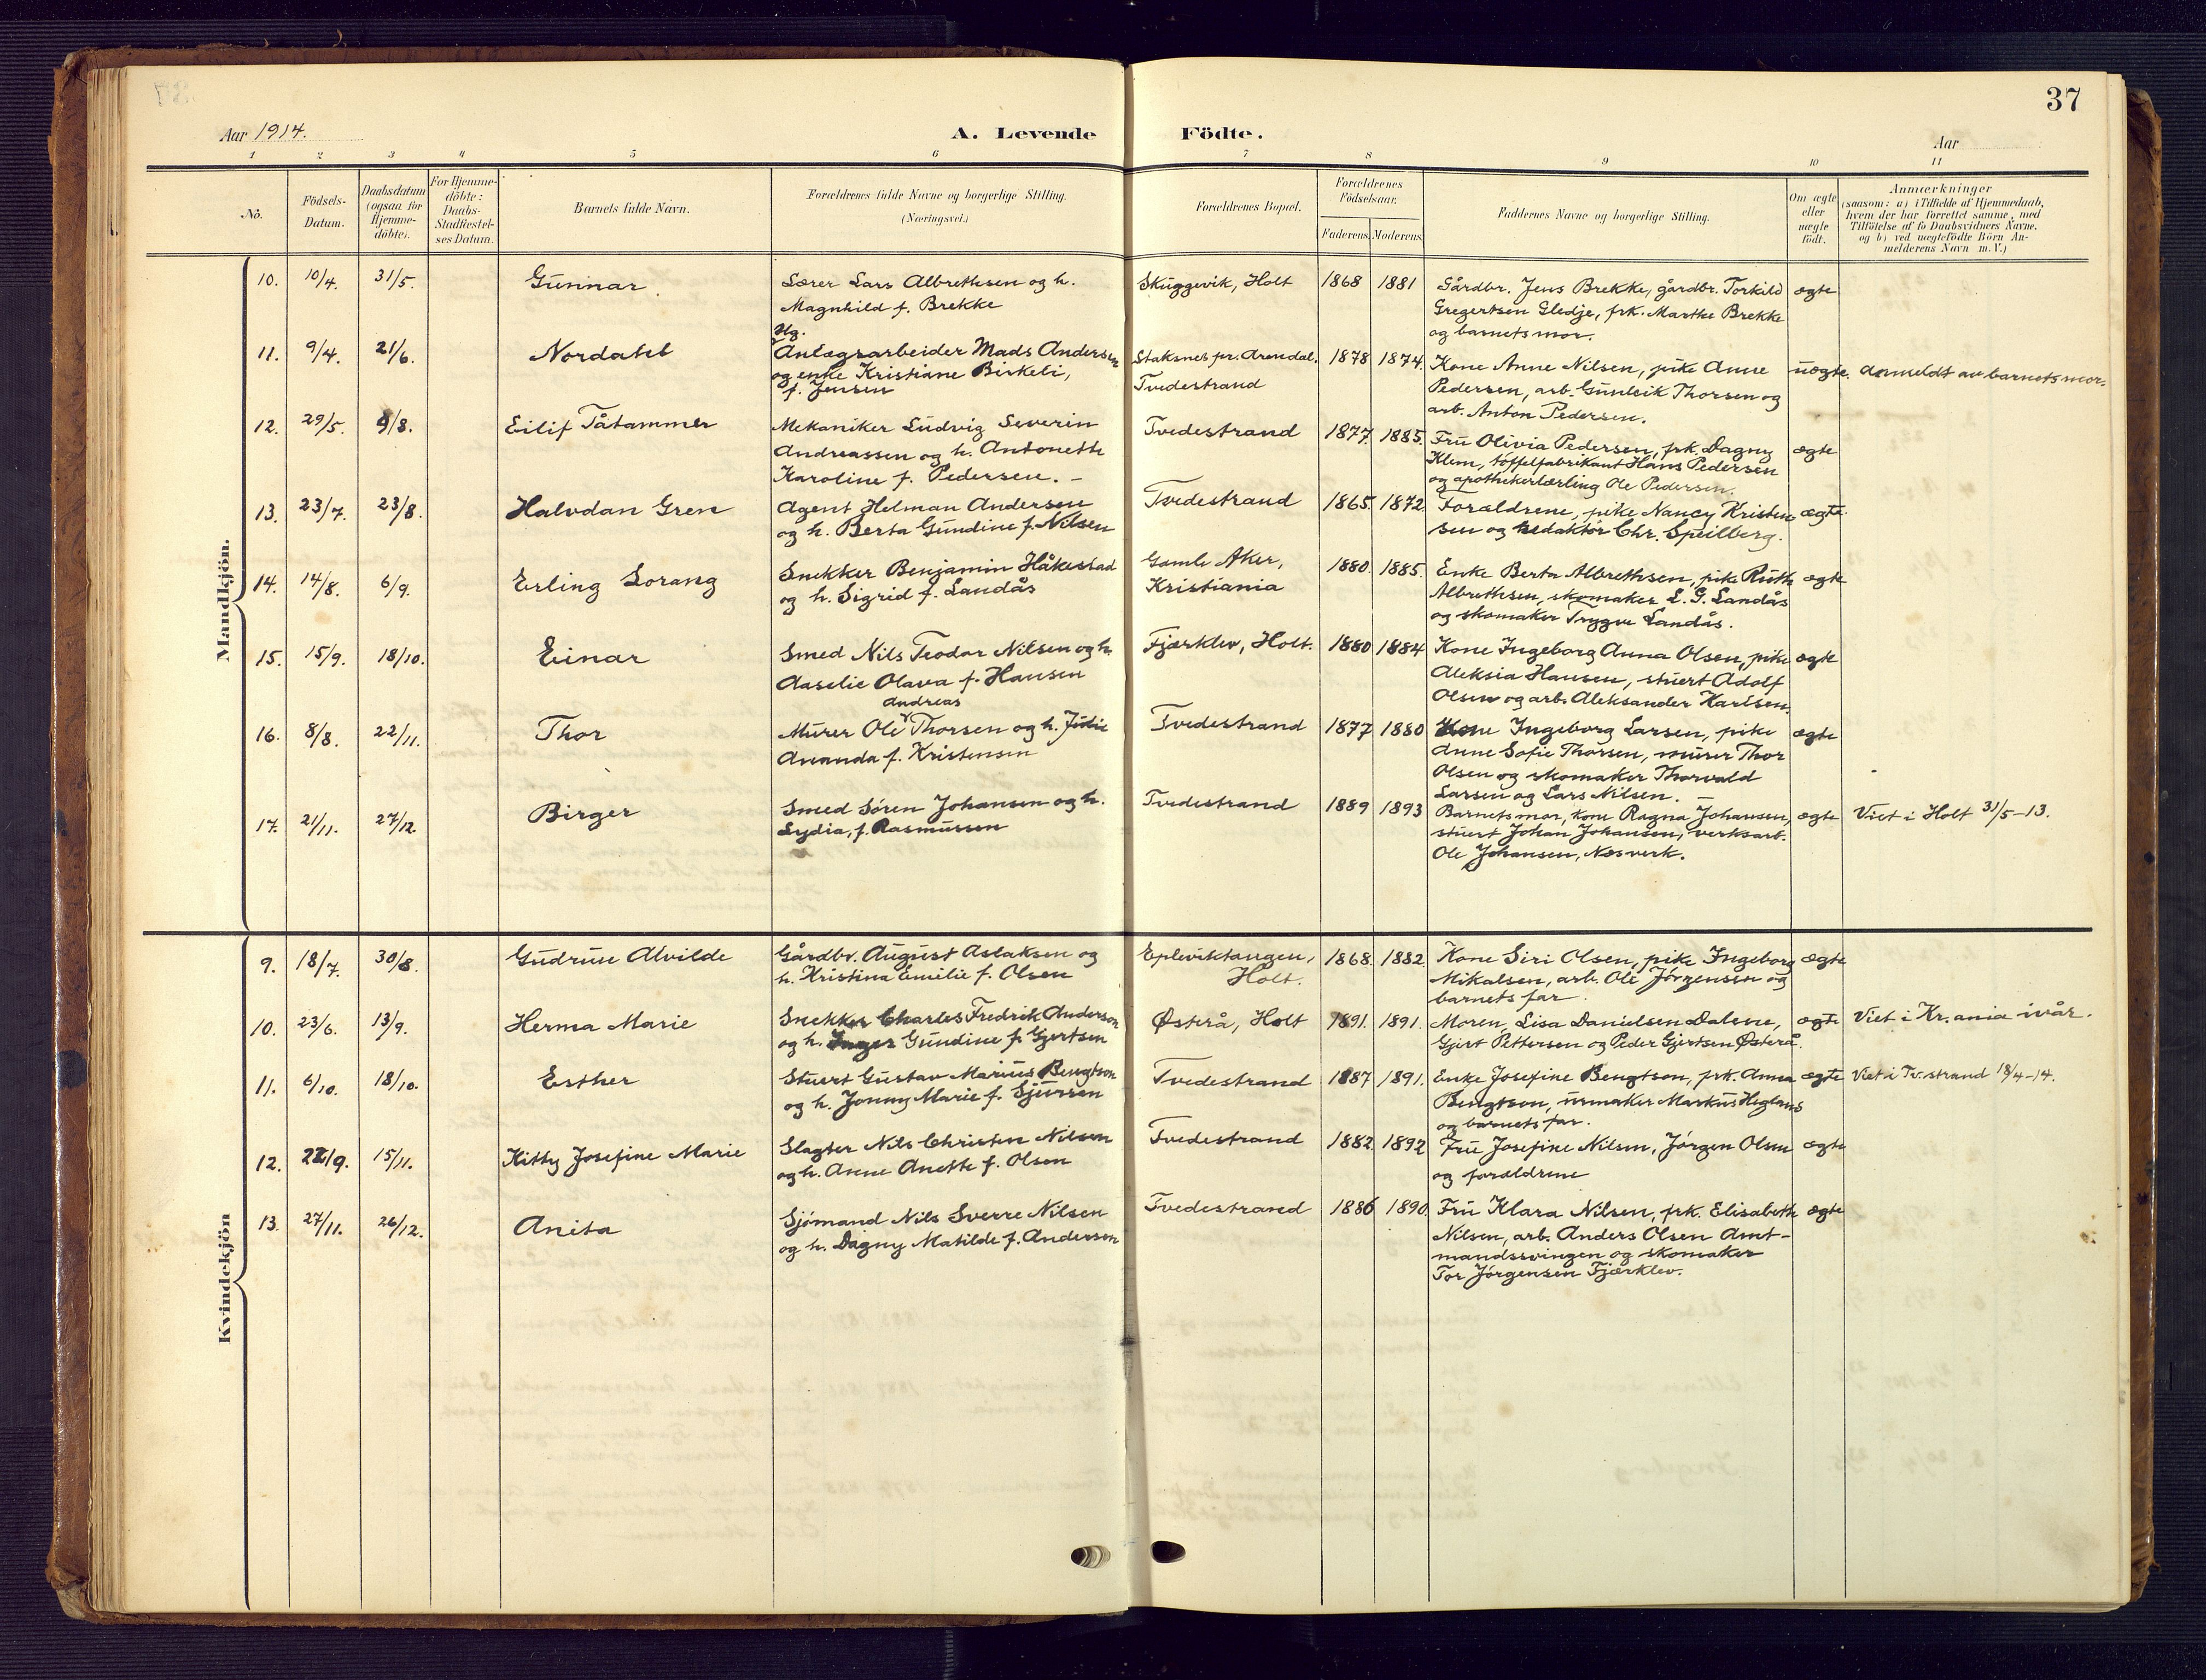 37
Aar 1914.
A. Levende Födte.
Aar
1 2 3 4 5 6 7 8 9 10 11
No.
Födsels-
Datum.
Daabsdatum
(ogsaa for
Hjemme-
döbte).
For Hjemme-
döbte:
Daabs-
Stadfæstel-
ses Datum.
Barnets fulde Navn.
Forældrenes fulde Navne og borgerlige Stilling.
(Næringsvei.)
Forældrenes Bopæl.
Forældrenes
Födselsaar.
Faderens Moderens
Faddernes Navne og borgerlige Stilling.
Om ægte
eller
uægte
födt.
Anmærkninger
(saasom: a) i Tilfælde af Hjemmedaab,
hvem der har forrettet samme, med
Tilföielse af to Daabsvidners Navne.
og b) ved uægtefödte Börn An-
melderens Navn m. V.)
Mandkjön.
10. 10/4. 31/5. Gunnar. Lærer Lars Albrethsen og h. Skuggevik, Holt 1868 1881 Gårdbr. Jens Brekke, gårdbr. Torkild ægte
Magnhild f. Brekke Gregertsen Gledje, frk. Marthe Brekke
og barnets mor.
Ug.
11. 9/4. 21/6. Nordahl Anlægsarbeider Mads Andersen Staksnes pr. Arendal. 1878 1874. Kone Anne Nilsen, pike Anne uægte. Anmeldt av barnets mor.
og enke Kristiane Birkeli, Tvedestrand Pedersen, arb. Gunleik Thorsen og
f. Jensen arb. Anton Pedersen.
12. 29/5. 9/8. Eilif Tåtammer Mekaniker Ludvig Severin Tvedestrand 1877 1885. Fru Olivia Pedersen, frk. Dagny ægte
Andreassen og h. Antonette Klem, töffelfabrikant Hans Pedersen
Karoline f. Pedersen. – og apothekerlærling Ole Pedersen.
13. 23/7. 23/8. Halvdan Gren Agent Helman Andersen Tvedestrand 1865. 1872 Forældrene, pike Nancy Kristen- ægte.
og h. Berta Gundine f. Nilsen sen og redaktör Chr. Speilberg.
14. 14/8. 6/9. Erling Lorang Snekker Benjamin Håkestad Gamle Aker, 1880. 1885. Enke Berta Albrethsen, pike Ruth ægte
og h. Sigrid f. Landås Kristiania Albrethsen, skomaker L. G. Landås
og skomaker Trygve Landås.
15. 15/9. 18/10. Einar Smed Nils Teodor Nilsen og h. Fjærklev, Holt. 1880 1884 Kone Ingeborg Anna Olsen, pike ægte
Aaselie Olava f. Hansen Aleksia Hansen, stuert Adolf
Olsen og arb. Aleksander Karlsen.
Andreas
16. 8/8. 22/11. Thor Murer Ole Thorsen og h. Julie Tvedestrand 1877 1880 Kone Ingeborg Larsen, pike ægte
Ananda f. Kristensen Anne Sofie Thorsen, murer Thor
Olsen og skomaker Thorvald
Larsen og Lars Nilsen. –
17. 21/11. 27/12. Birger Smed Sören Johansen og h. Tvedestrand 1889 1893 Barnets mor, kone Ragna Johansen, ægte Viet i Holt 31/5–13.
Lydia, f. Rasmussen stuert Johan Johansen, verksarb.
Ole Johansen, Næsverk.
Kvindekjön
9. 18/7. 30/8. Gudrun Alvilde Gårdbr. August Aslaksen og Epleviktangen, 1868. 1882. Kone Siri Olsen, pike Ingeborg ægte
h. Kristina Emilie f. Olsen Holt. Mikalsen, arb. Ole Jörgensen og
barnets far.
10. 23/6. 13/9. Herma Marie Snekker Charles Fredrik Anderson Østerå, Holt 1891. 1891. Moren, Lisa Danielsen Dalene, ægte Viet i Kr.ania i vår.
og h. Gundine f. Gjertsen Gjert Pettersen og Peder Gjertsen Østerå.
11. 6/10. 18/10. Esther Stuert Gustav Marius Bengtson Tvedestrand 1887 1891. Enke Josefine Bengtson, frk. Anna ægte Viet i Tv.strand 18/4–14.
og h. Jonny Marie f. Sjursen Bengtson, urmaker Markus Heglans
og barnets far.
12. 22/9. 15/11. Kitty Josefine Marie Slagter Nils Christen Nilsen Tvedestrand 1882 1892 Fru Josefine Nilsen, Jörgen Olsen ægte
og h. Anne Anette f. Olsen og forældrene
13. 27/11. 26/12. Anita Sjömand Nils Sverre Nilsen Tvedestrand 1886 1890. Fru Klara Nilsen, frk. Elisabeth ægte
og h. Dagny Matilde f. Andersen Nilsen, arb. Anders Olsen Amt-
mandssvingen og skomaker
Tor Jörgensen Fjærklev.